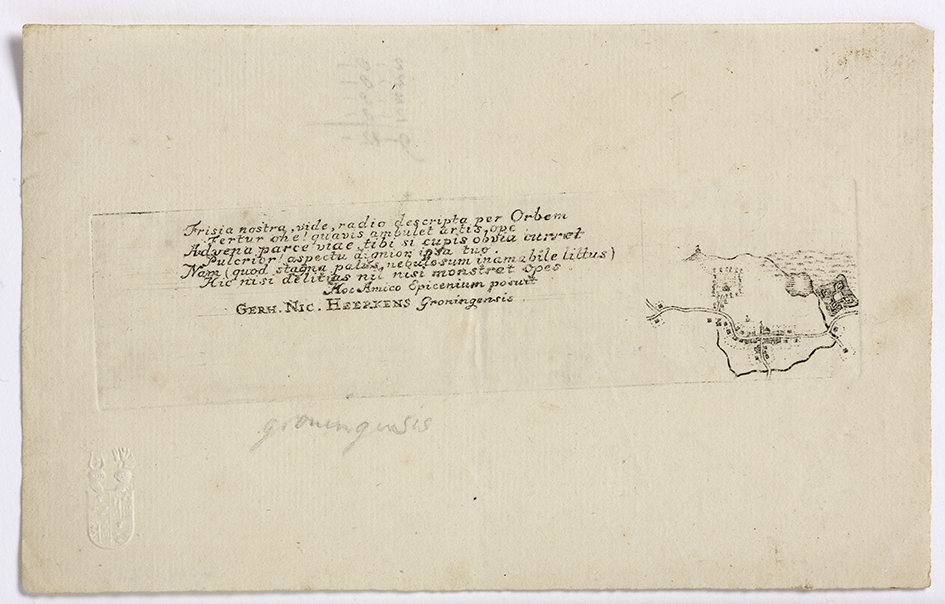 Frisia nostra, vide, radio descripta per Orbem
Fertur ohe! quavis ambulet artis ope
Advena parce viae, tibi si cupis obvia curret
Pulcrior! aspectu dignior ipsa tuo
Nam (quod stagna palus, nebulosum inamabile littus)
Hic nisi delitias nil nisi monstret opes
Hoc Amico Epicenium posuit
GERH. NIC. HEERKENS Groningensis
groningensis